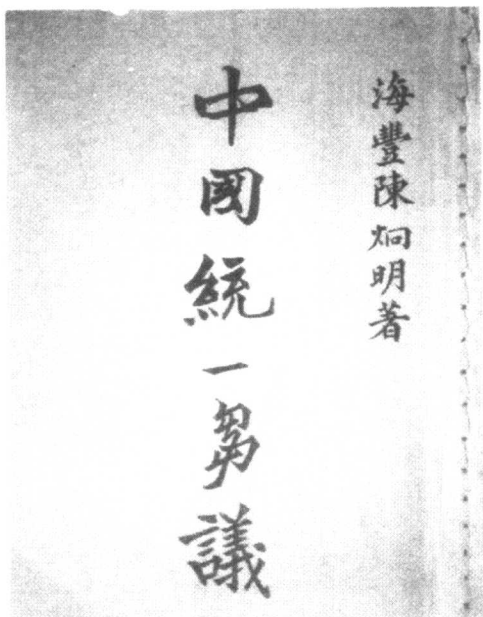 海豐陳炯明著
中國統一芻議